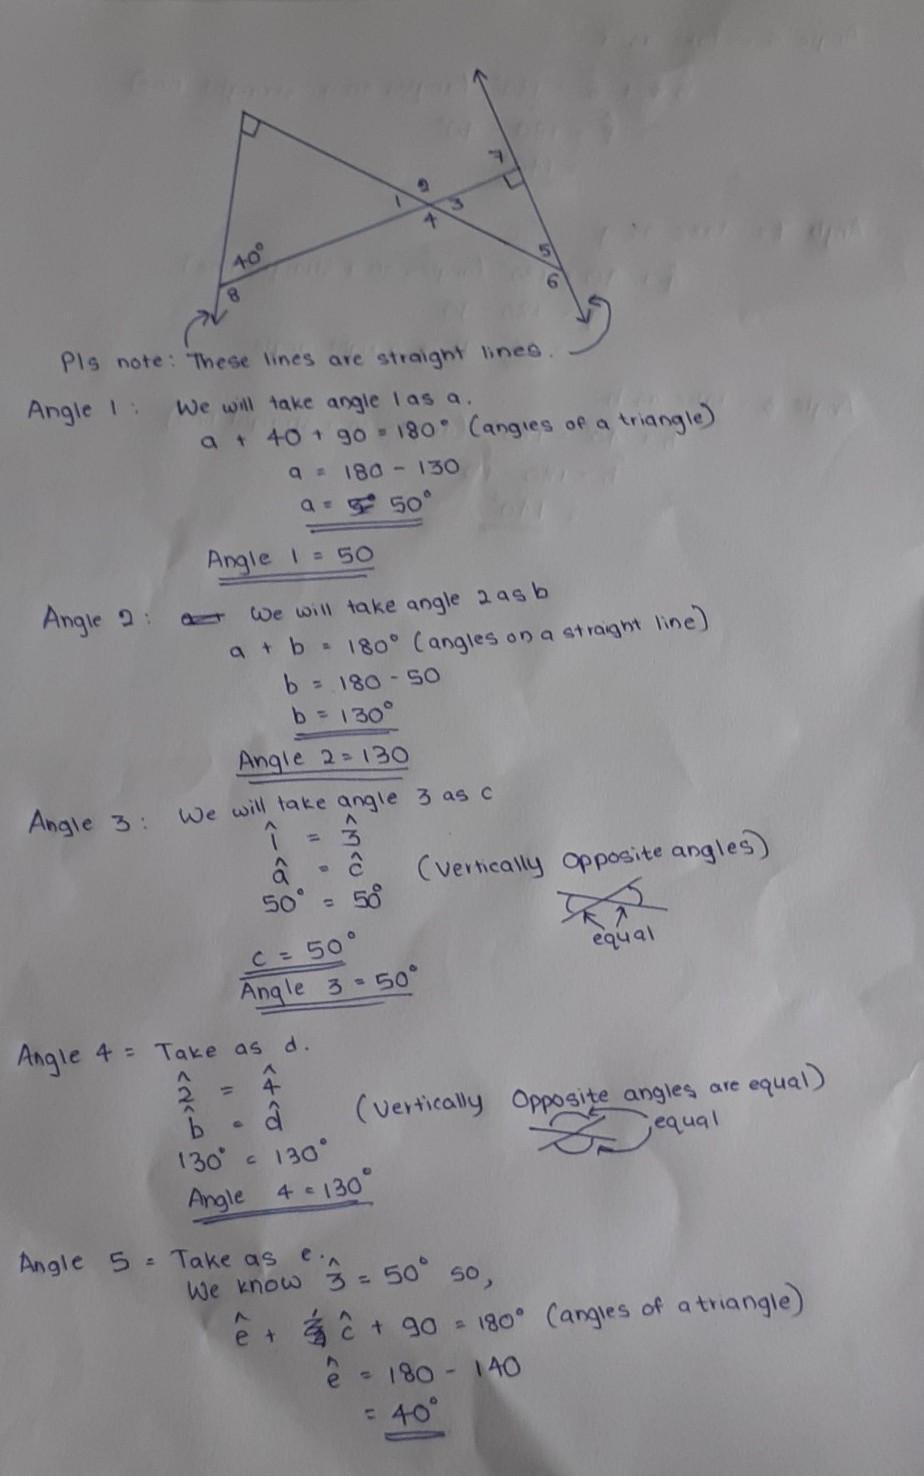 7
2
1
3
4
5
40°
6
8
Pls note: These lines are straight lines.
Angle 1: We will take angle 1 as a.
a + 40 + 90 = 180° (angles of a triangle)
a = 180 - 130
a = 50°
Angle 1 = 50
Angle 2: We will take angle 2 as b
a + b = 180° (angles on a straight line)
b = 180 - 50
b = 130°
Angle 2 = 130
Angle 3: We will take angle 3 as c
1̂ = 3̂
â = ĉ (Vertically Opposite angles)
50° = 50°
equal
c = 50°
Angle 3 = 50°
Angle 4 = Take as d.
2̂ = 4̂
b̂ = d̂ (Vertically Opposite angles are equal)
equal
130° = 130°
Angle 4 = 130°
Angle 5 = Take as e.
We know 3̂ = 50° so,
ê + ĉ + 90 = 180° (angles of a triangle)
ê = 180 - 140
= 40°